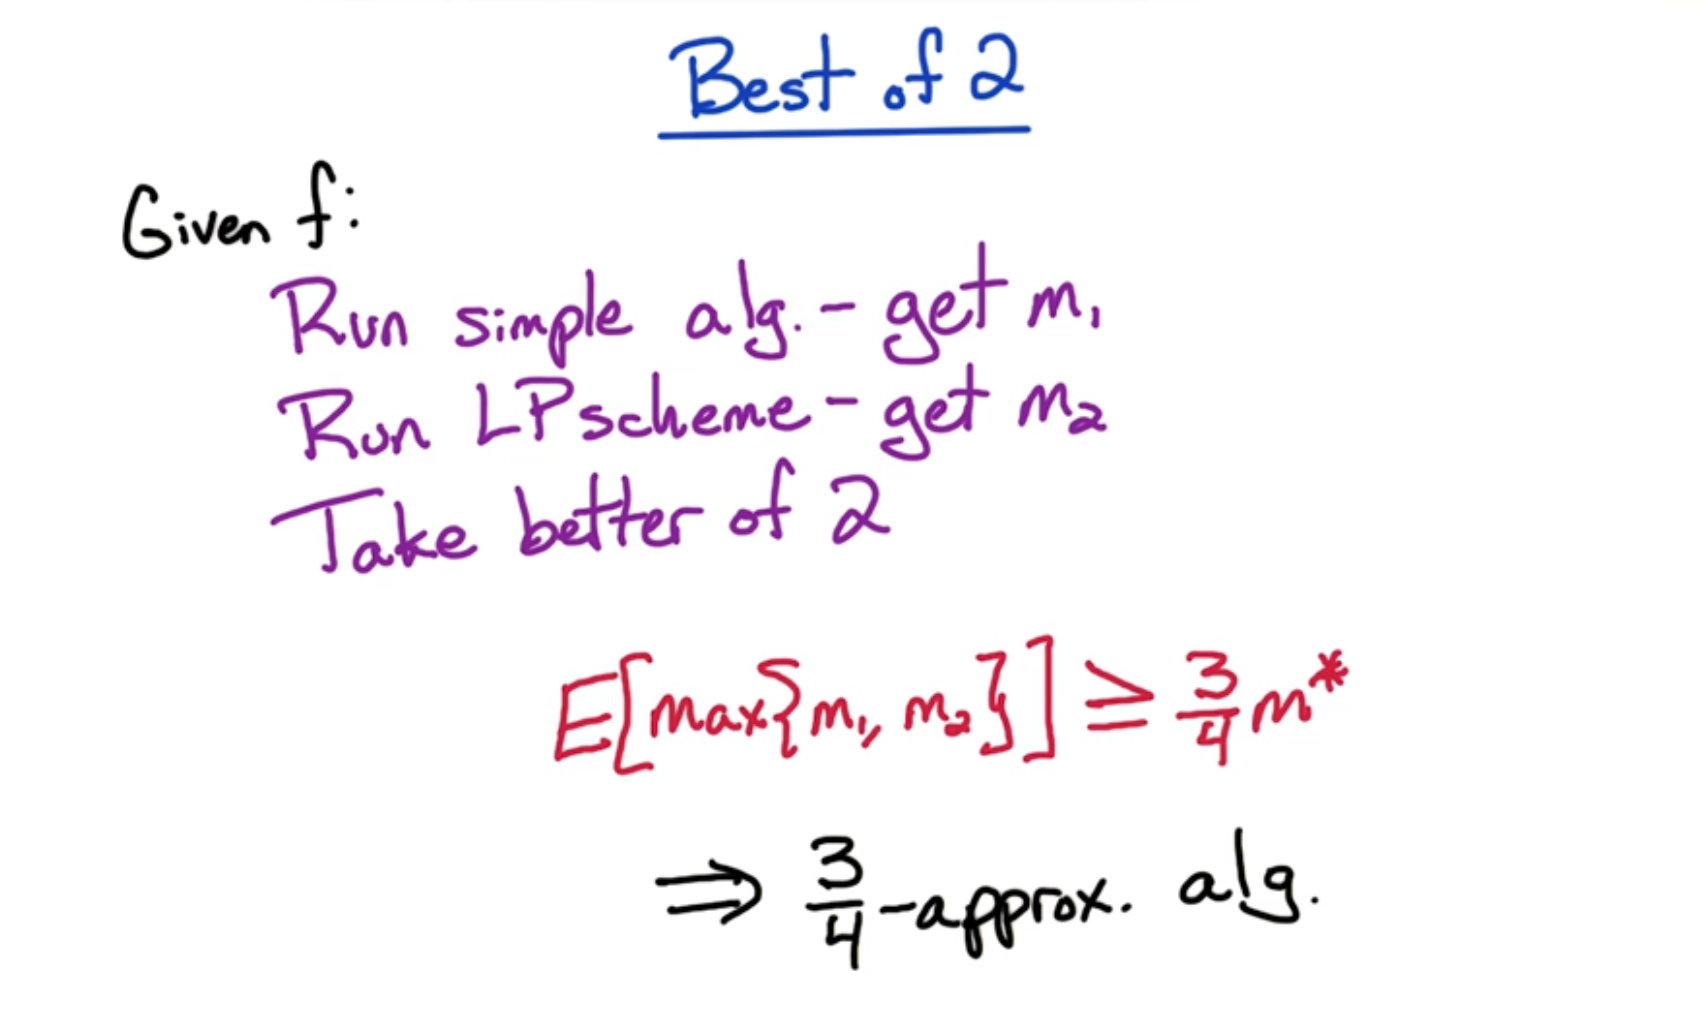 Best of 2
Given f:
Run simple alg. - get m₁
Run LP scheme - get m₂
Take better of 2
E[max{m₁, m₂}] ≥ 3/4 m*
⇒ 3/4 -approx. alg.